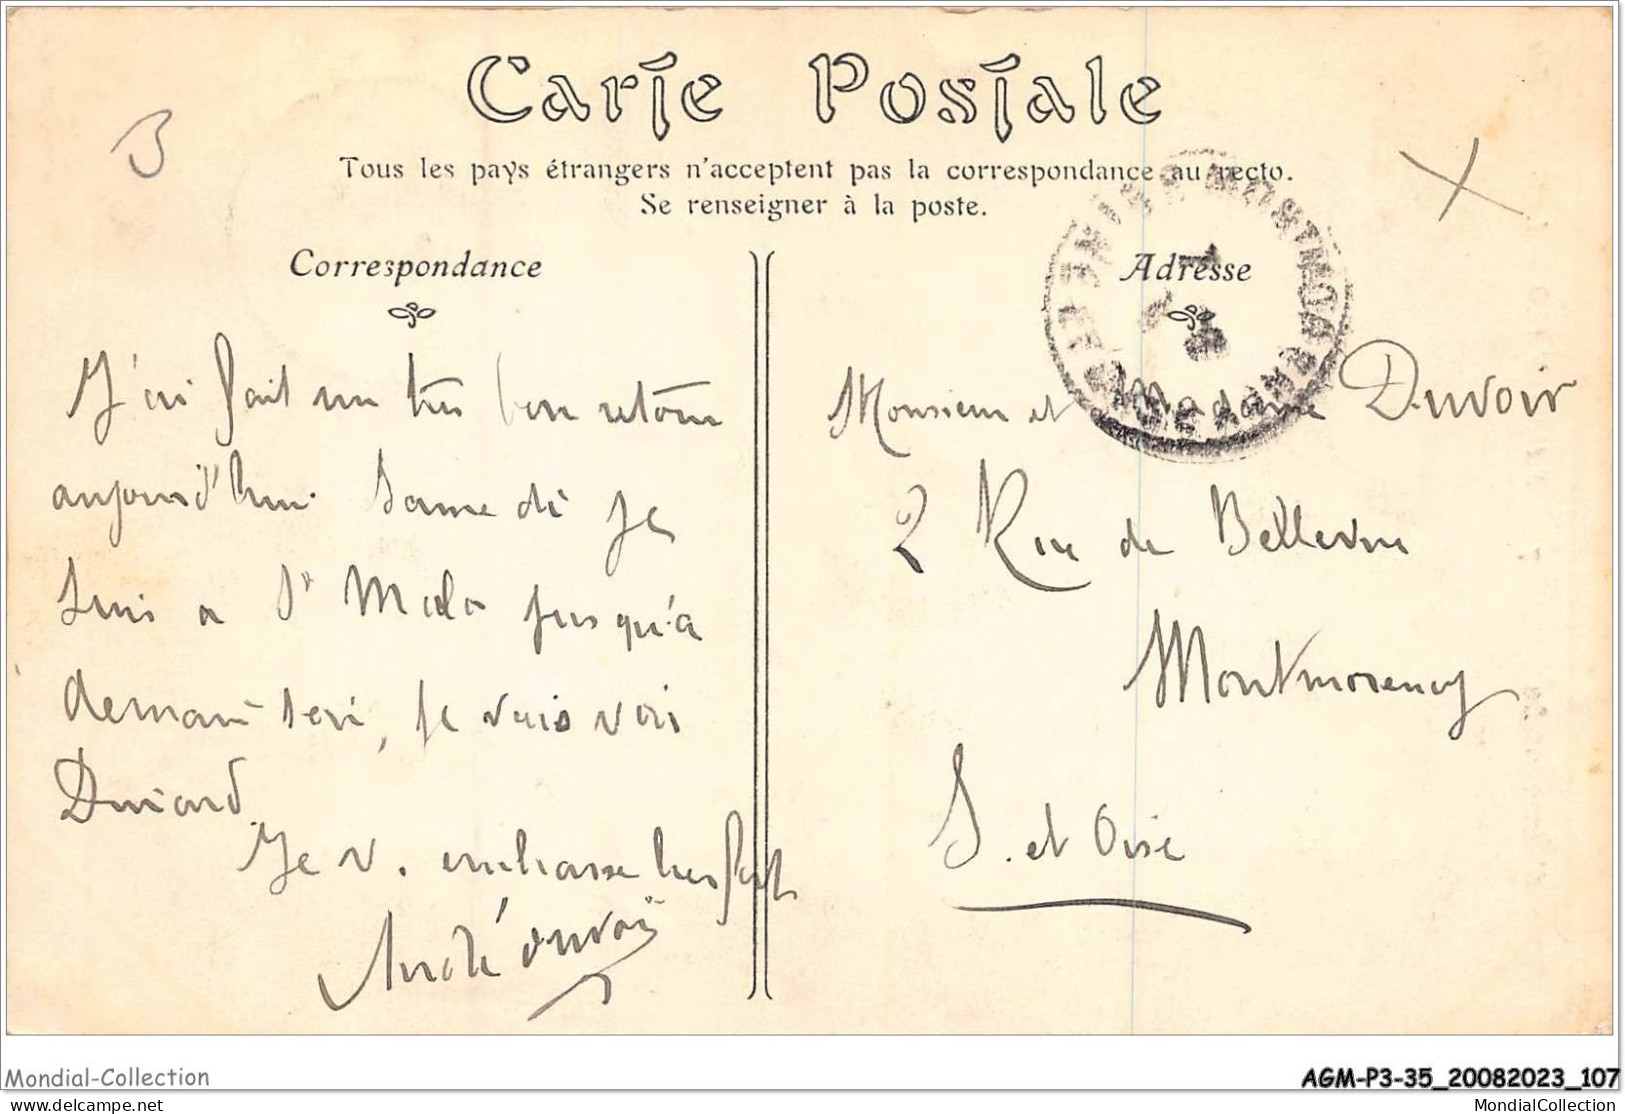 Carte Postale
Tous les pays étrangers n'acceptent pas la correspondance au recto.
Se renseigner à la poste.
Correspondance
J'ai fait un très bon retour
aujourd'hui Samedi je
suis a St Malo jusqu'à
demain soir, je vais voir
Dinard
Je v. embrasse très fort
André Duvoir
Adresse
Monsieur et Madame Duvoir
2 Rue de Bellevue
Montmorency
S. et Oise
Mondial-Collection
AGM-P3-35_20082023_107
mondial-collection.com
MondialCollection